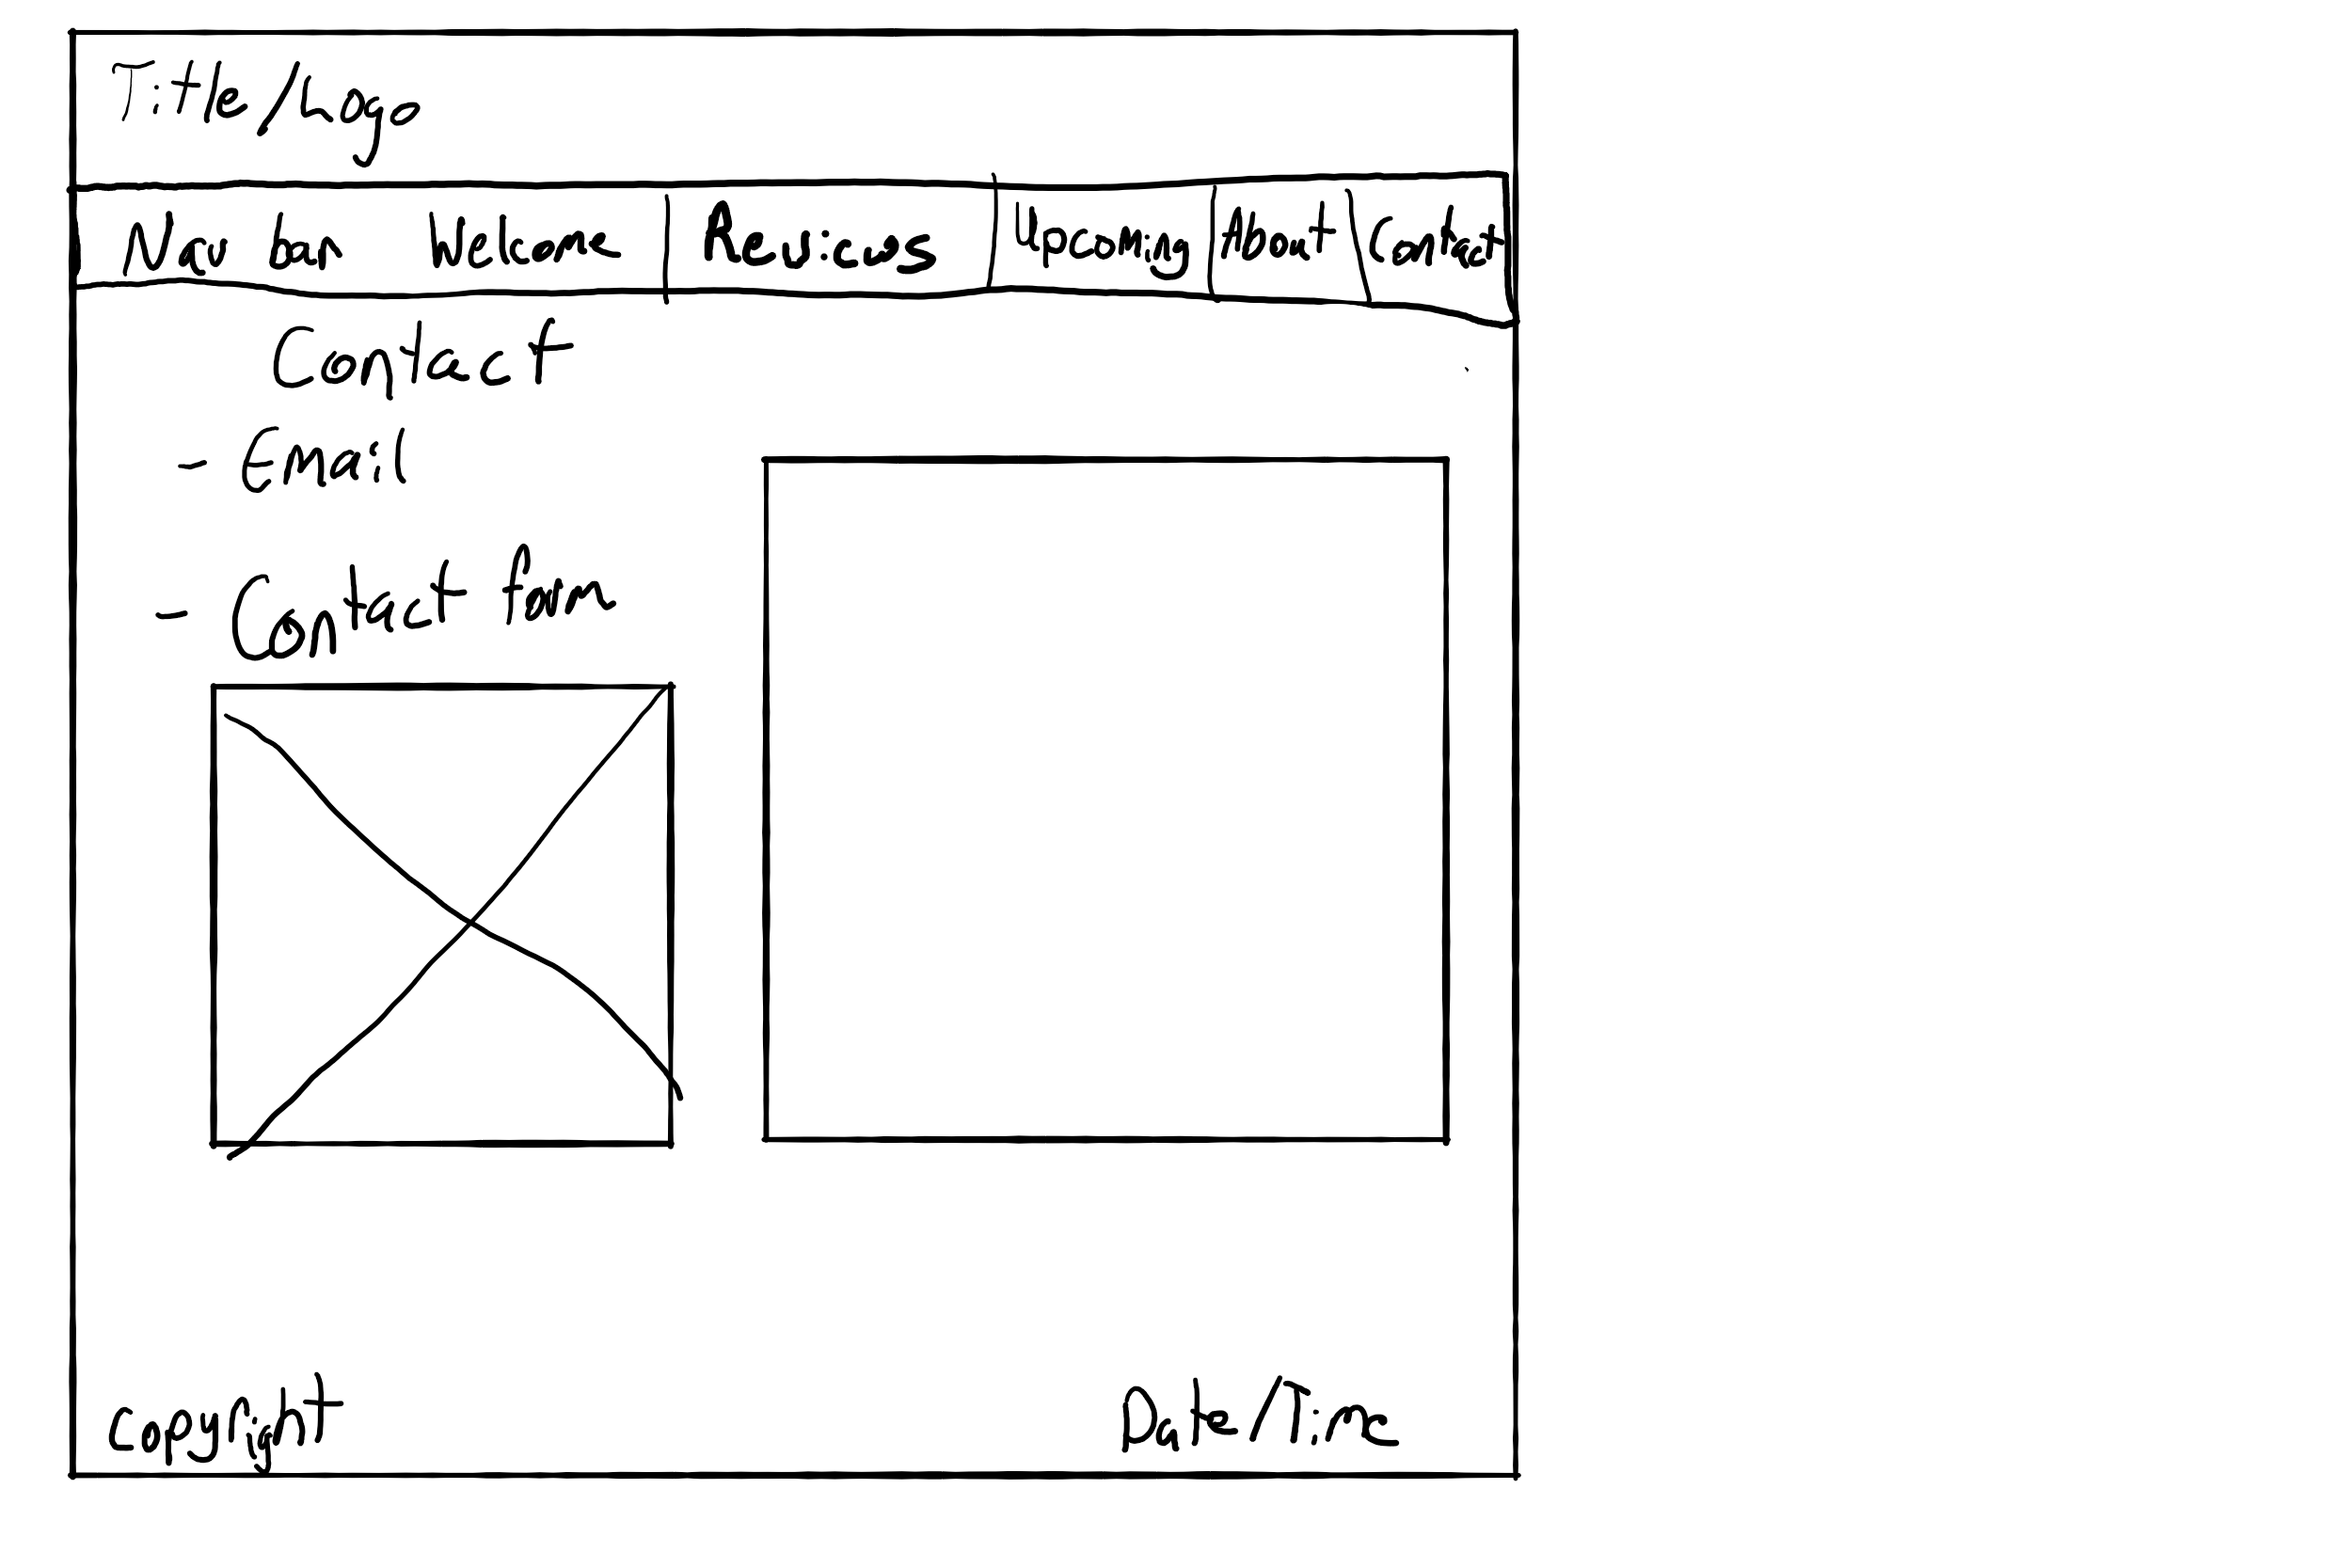 Title/Logo
Nav bar Welcome Reviews Upcoming About Contact
Contact
- Email
- Contact form
Copyright Date/Time